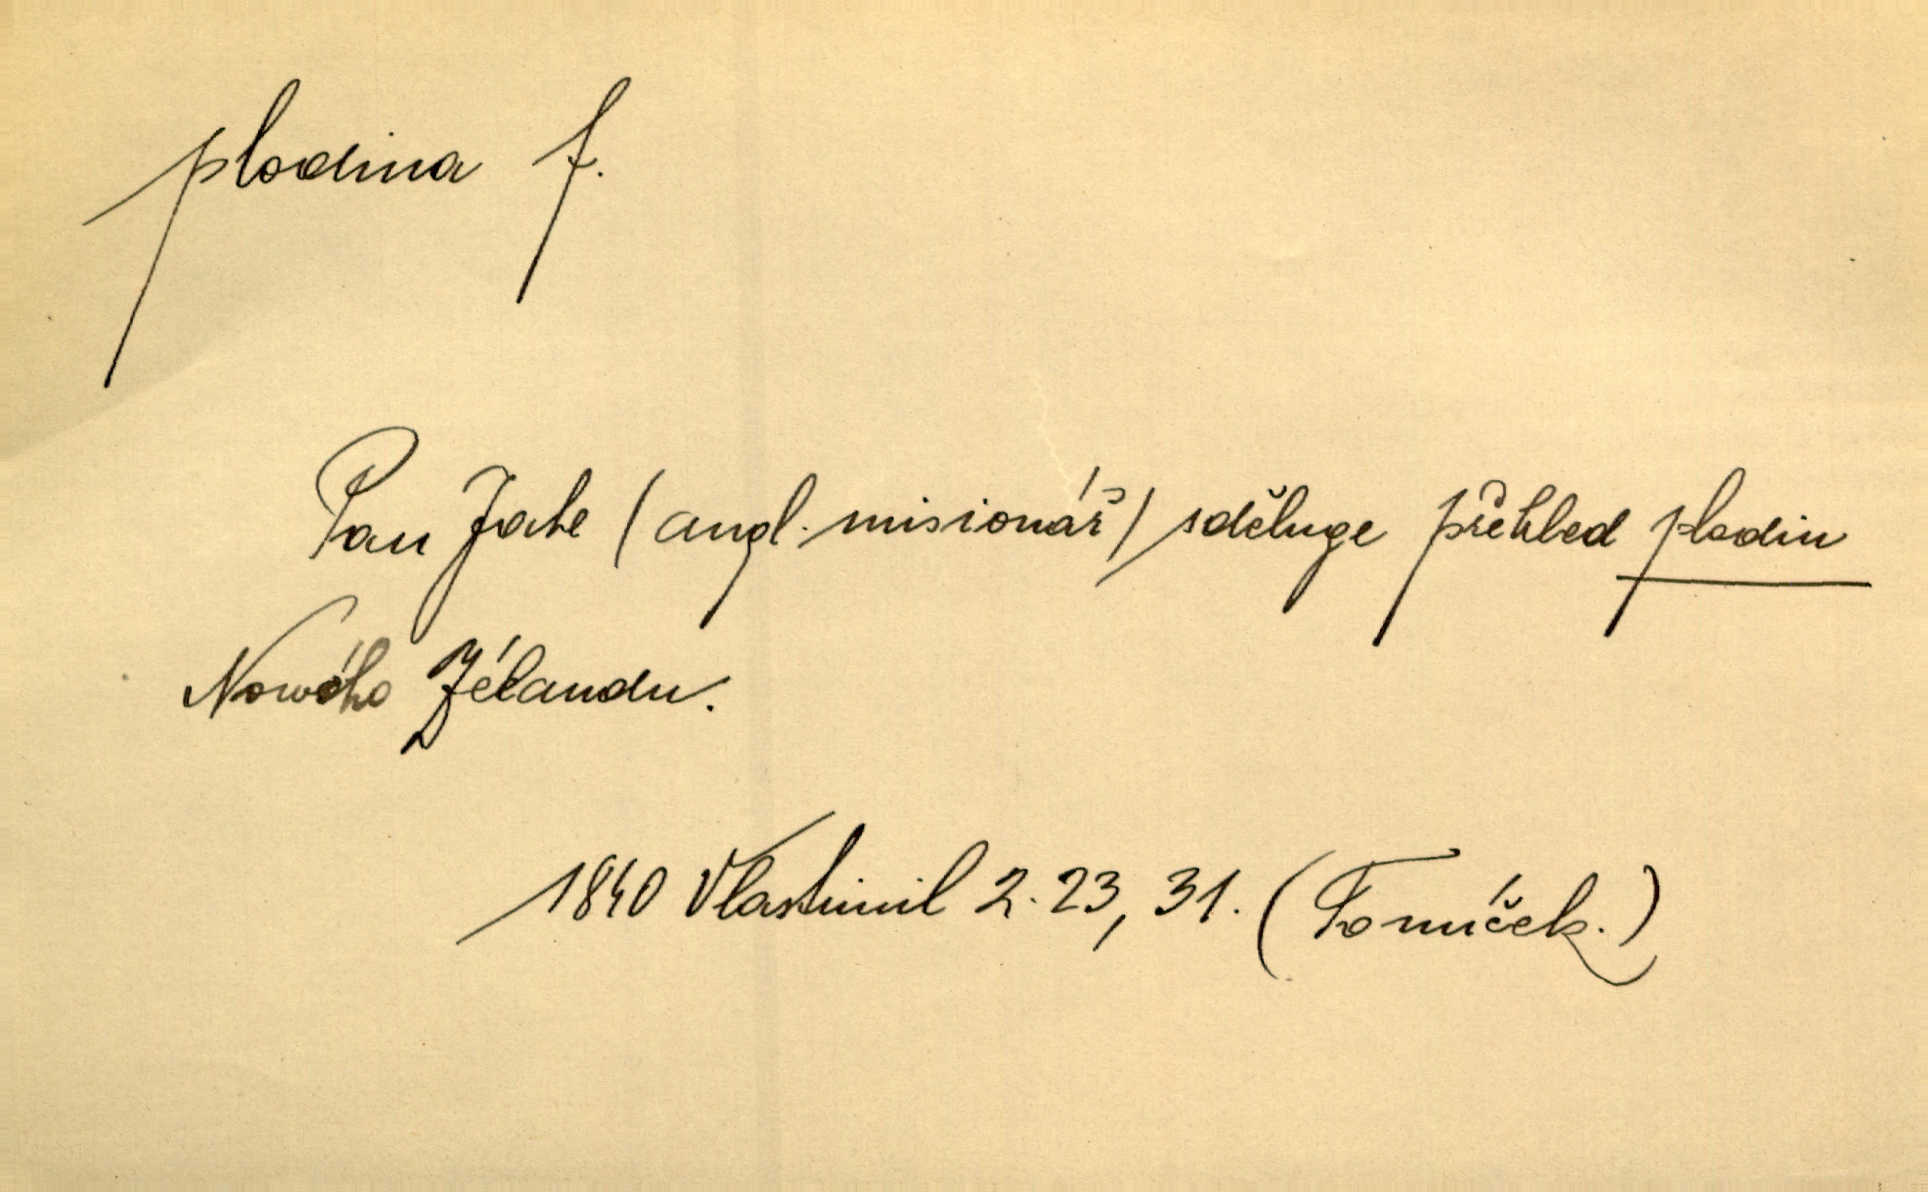 plodina f.
Pan Jate (angl. misionář) sděluge přehled plodin
Nowého Zélandu.
1840 Vlastimil 2. 23, 31. (Tomíček.)